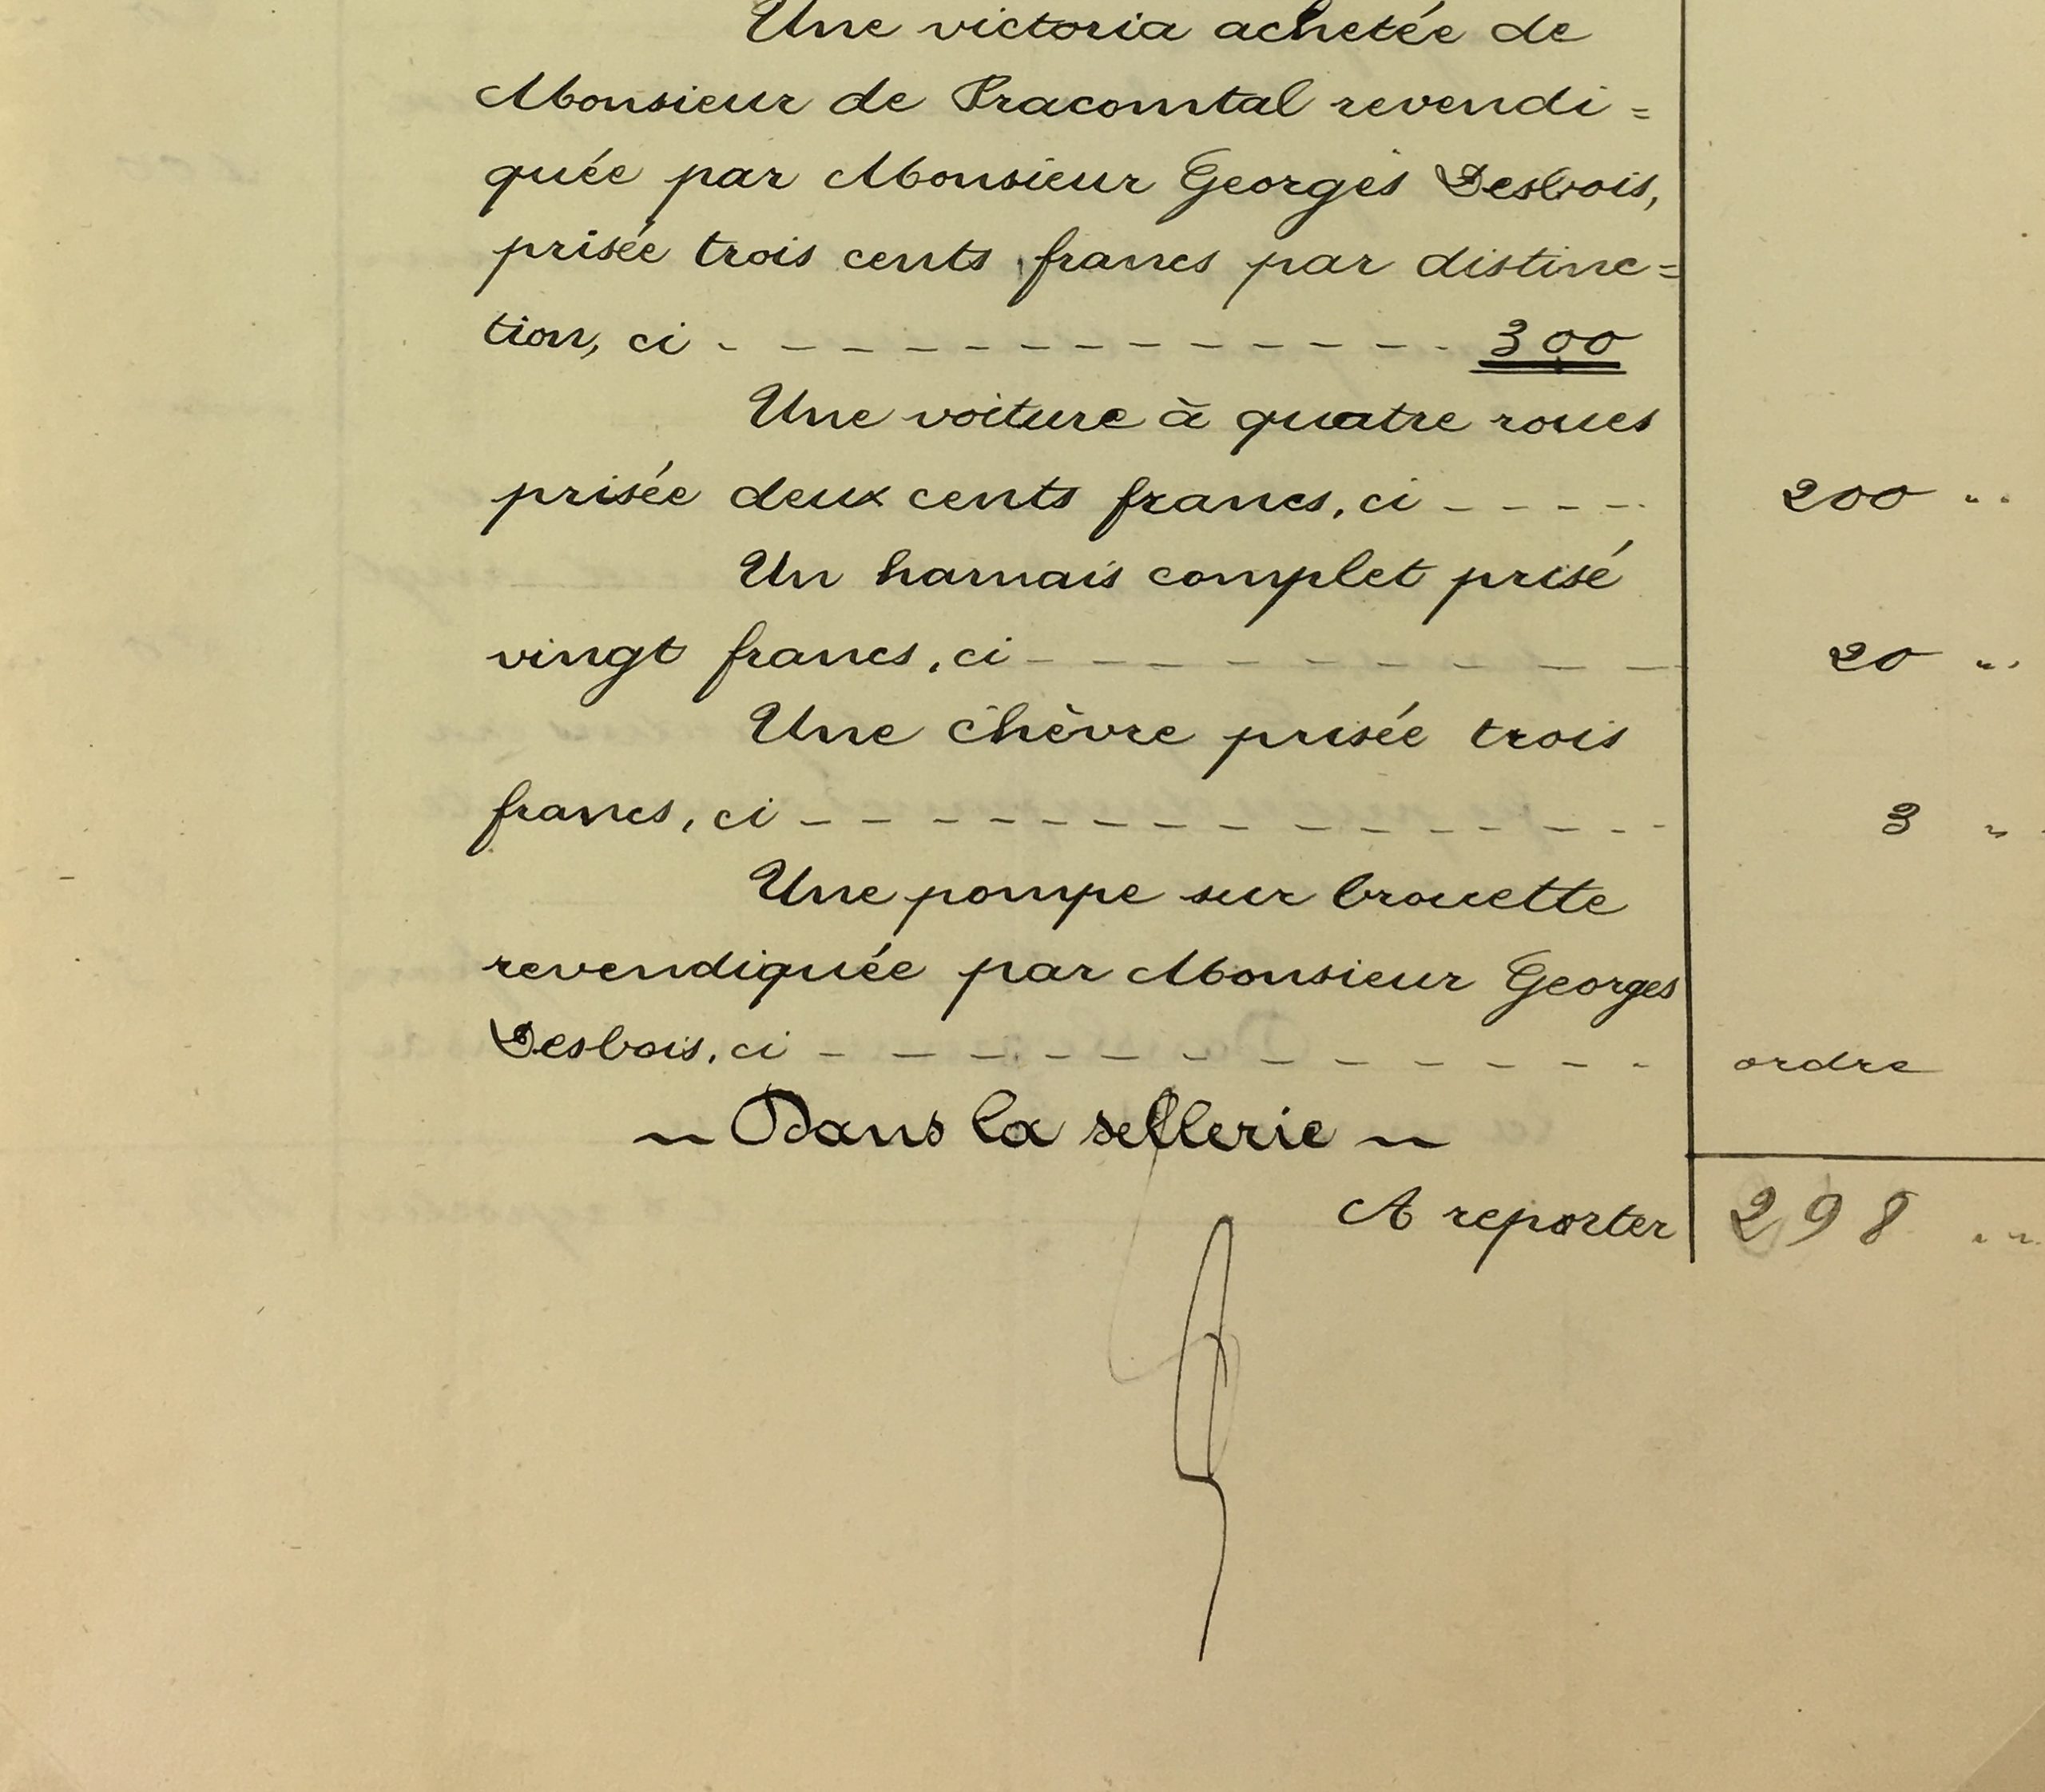 Une victoria achetée de
Monsieur de Pracomtal revendi=
quée par Monsieur Georges Desbois,
prisée trois cents francs par distinc=
tion, ci - - - - - - - - - - - - - 300
Une voiture à quatre roues
prisée deux cents francs, ci - - - - - 200 "
Un harnais complet prisé
vingt francs, ci - - - - - - - - - 20 "
Une chèvre prisée trois
francs, ci - - - - - - - - - - - - - - 3 "
Une pompe sur brouette
revendiquée par Monsieur Georges
Desbois, ci - - - - - - - - - - ordre
~ Dans la sellerie ~
A reporter 298 "